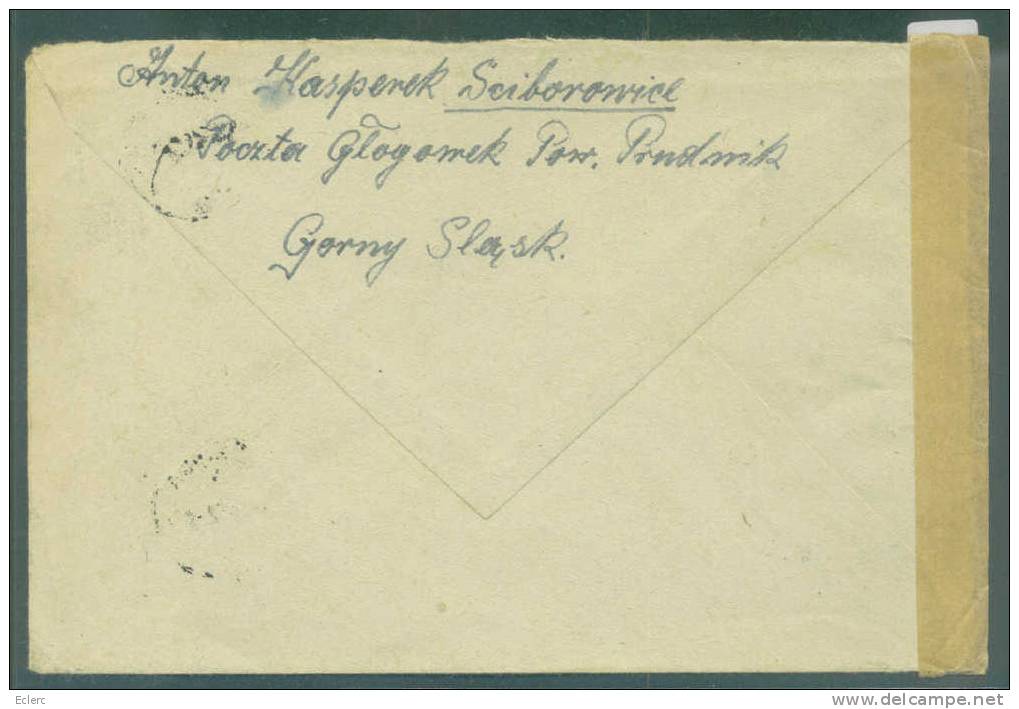 Anton Kasperek Sciborowice
Poczta Głogowek Pow. Prudnik
Gorny Sląsk.
Eclerc
www.delcampe.net